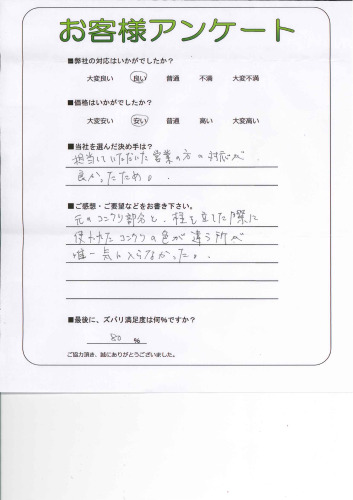 お客様アンケート
■弊社の対応はいかがでしたか?
大変良い 良い 普通 不満 大変不満
■価格はいかがでしたか?
大変安い 安い 普通 高い 大変高い
■当社を選んだ決め手は?
担当していただいた営業の方の対応が
良かったため。
■ご感想・ご要望などをお書き下さい。
元のコンクリ部分と、柱を立てた際に
使われたコンクリの色が違う所が
唯一気に入らなかった。
■最後に、ズバリ満足度は何%ですか?
80 %
ご協力頂き、誠にありがとうございました。